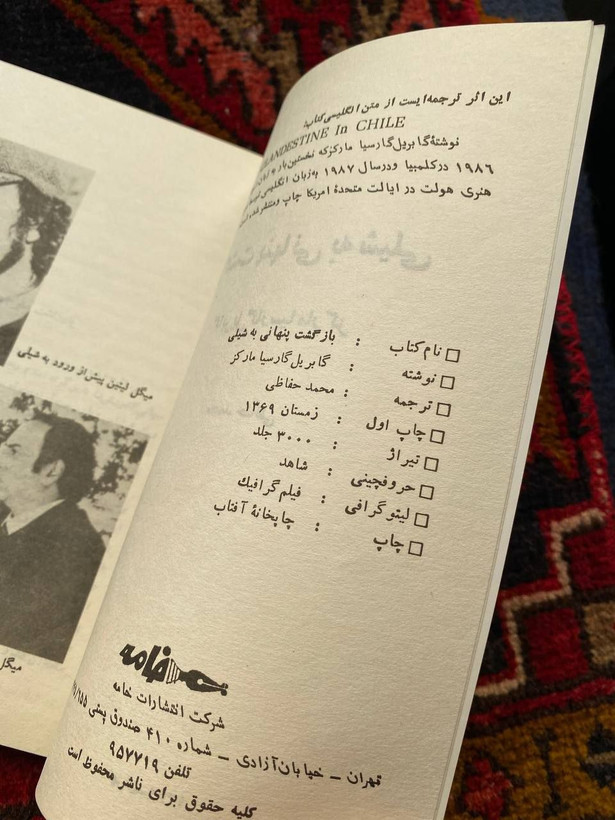 این اثر ترجمه‌ایست از متن انگلیسی کتاب:
CLANDESTINE In CHILE
نوشتهٔ گابریل گارسیا مارکز که نخستین‌بار به
۱۹۸۶ در کلمبیا و در سال ۱۹۸۷ به زبان انگلیسی
هنری هولت در ایالت متحدهٔ امریکا چاپ و منتشر شده
نام کتاب : بازگشت پنهانی به شیلی
نوشته : گابریل گارسیا مارکز
ترجمه : محمد حفاظی
چاپ اول : زمستان ۱۳۶۹
تیراژ : ۳۰۰۰ جلد
حروفچینی : شاهد
لیتوگرافی : فیلم گرافیك
چاپ : چاپخانهٔ آفتاب
خامه
شرکت انتشارات خامه
تهران ـ خیابان آزادی ـ شماره ۴۱۰ صندوق پستی
تلفن ۹۵۷۷۱۹
کلیه حقوق برای ناشر محفوظ است
میگل لیتین پیش از ورود به شیلی
میگل